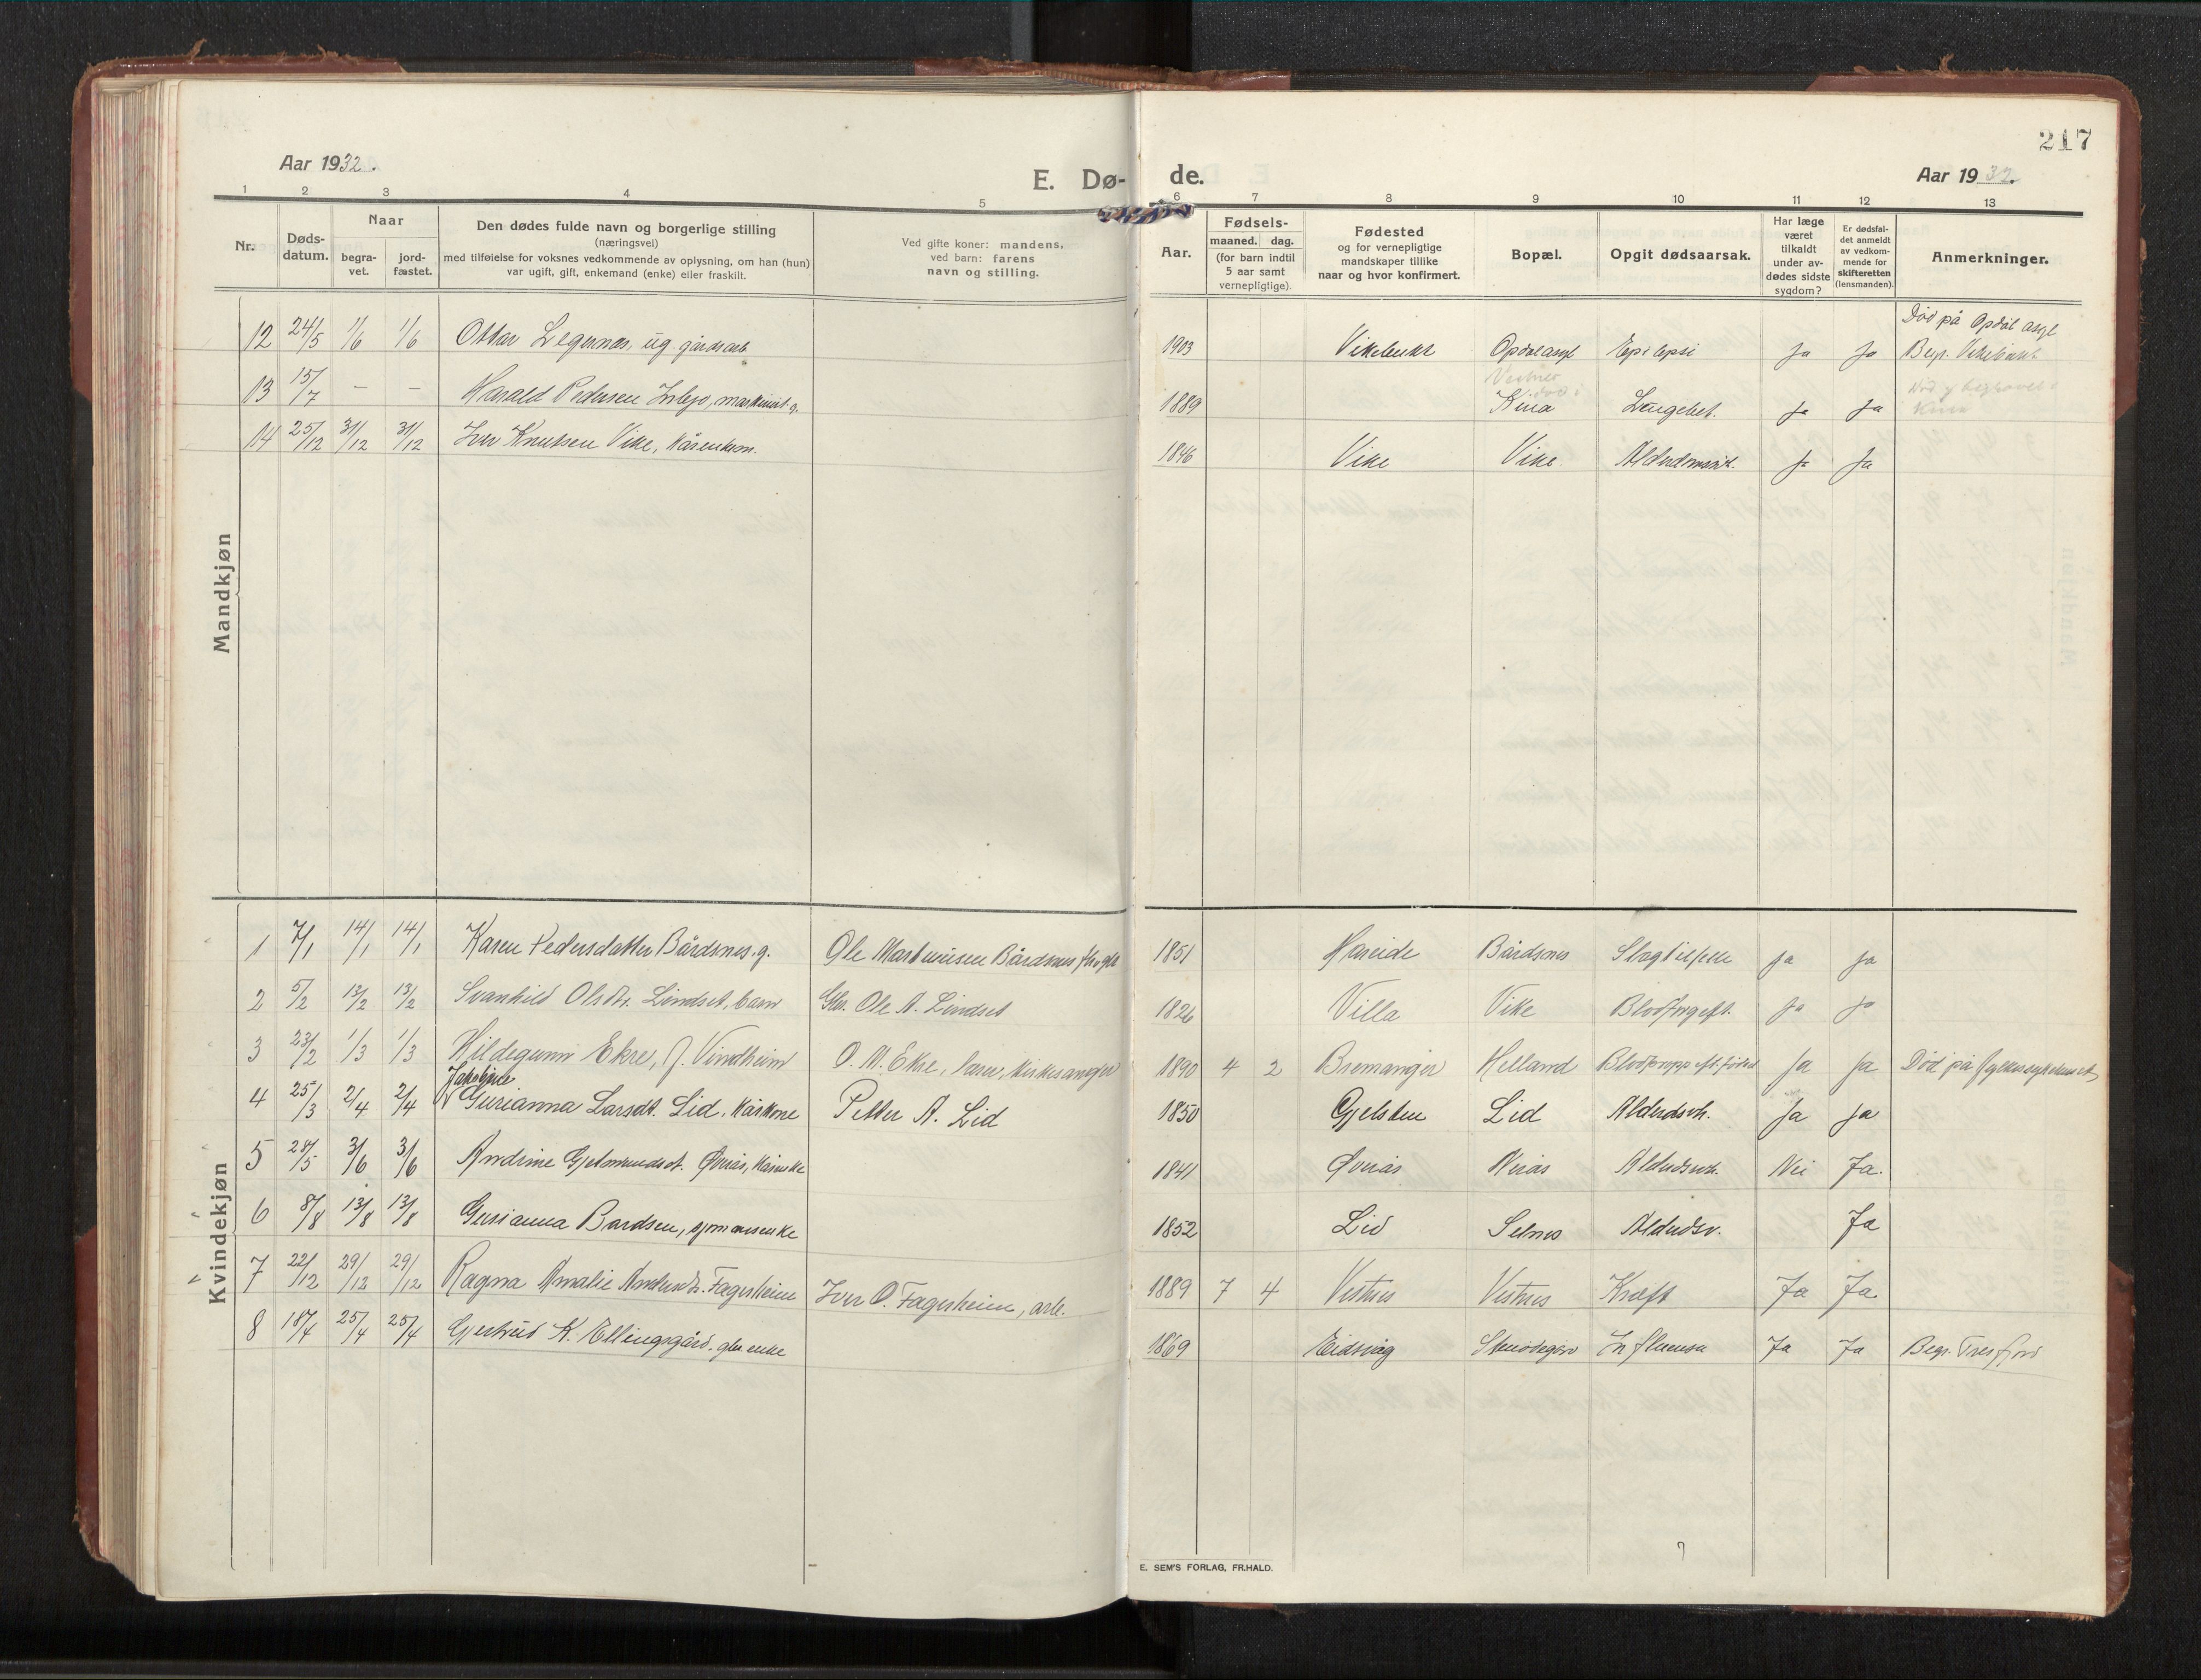 217
Aar 1932.
E. Dø-
de.
Aar 1932.
1 2 3 4 5 6 7 8 9 10 11 12 13
Nr.
Døds-
datum.
Naar
begra-
vet.
jord-
fæstet.
Den dødes fulde navn og borgerlige stilling
(næringsvei)
med tilføielse for voksnes vedkommende av oplysning, om han (hun)
var ugift, gift, enkemand (enke) eller fraskilt.
Ved gifte koner: mandens,
ved barn: farens
navn og stilling.
Aar.
Fødsels-
maaned. dag.
(for barn indtil
5 aar samt
vernepligtige).
Fødested
og for vernepligtige
mandskaper tillike
naar og hvor konfirmert.
Bopæl.
Opgit dødsaarsak.
Har læge
været
tilkaldt
under av-
dødes sidste
sygdom?
Er dødsfal-
det anmeldt
av vedkom-
mende for
skifteretten
(lensmanden).
Anmerkninger.
Mandkjøn
Død på Opdøl asyl
12 24/5 1/6 1/6 Ottar Legernes, ug. gårdsarb. 1903 Vikebukt Opdøl asyl Epilepsi Ja Ja Begr. Vikebukt
Vestnes
13 15/7 — — Harald Pedersen, maskinist. g. 1889 Kina Lungebet. Ja Ja
14 25/12 31/12 31/12 Iver Knutsen Vike, kårenkem. 1846 Vike Vike Ja Ja
Kvindekjøn
1 7/1 14/1 14/1 Karen Pedersdatter Bårdsnes. g. Ole Martinusen Bårdsnes 1851 Hareide Bårdsnes Slagtilfelle Ja Ja
2 5/2 13/2 13/2 Svanhild Olsdtr. Lindset, barn Gbr. Ole A. Lindset 1826 Villa Vike Blodforgift. Ja Ja
3 23/2 1/3 1/3 Hildegunn Ekre, f. Vindheim O. M. Ekre, lærer, kirkesanger 1890 4 2 Bremanger Helland Blodpropp eft. fødsel Ja Ja Død på fylkessykehuset
Jakobine
4 25/3 2/4 2/4 Gurianna Larsdt. Lid, kårkone Petter A. Lid 1850 Gjelsten Lid Alderdsvh. Ja Ja
5 28/5 3/6 3/6 Andrine Gjetmundsdt. Øverås, kårenke 1841 Øverås Alderdsvh. Nei Ja.
6 8/8 13/8 13/8 Gurianna Bardsen, sjømansenke 1852 Lid Selnes Alderdsv. Ja
7 22/12 29/12 29/12 Ragna Amalie Fagerheim Iver O. Fagerheim, arb. 1889 7 4 Vestnes Vestnes Kræft Ja Ja
8 18/4 25/4 25/4 Gjertrud K. Ellingsgård. gbr enke 1869 Eidsvåg Influensa Ja Ja Begr. Tresfjord
E. SEM'S FORLAG, FR.HALD.